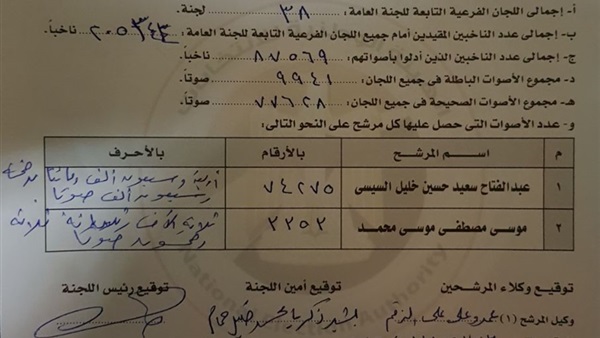 أ- إجمالى اللجان الفرعية التابعة للجنة العامة: ٣٨ لجنة.
ب- إجمالى عدد الناخبين المقيدين أمام جميع اللجان الفرعية التابعة للجنة العامة: ٢٠٥٣٤٣ ناخباً.
ج- إجمالى عدد الناخبين الذين أدلوا بأصواتهم: ٨٧٥٦٩ ناخباً.
د- مجموع الأصوات الباطلة فى جميع اللجان: ٩٩٤١ صوتاً.
هـ- مجموع الأصوات الصحيحة فى جميع اللجان: ٧٧٦٢٨ صوتاً.
و- عدد الأصوات التى حصل عليها كل مرشح على النحو التالى:
م اسم المرشح بالأرقام بالأحرف
١ عبدالفتاح سعيد حسين خليل السيسى ٧٤٢٧٥ أربعة وسبعون ألف ومائتا وخمسة
وسبعون ألف صوتا
٢ موسى مصطفى موسى محمد ٣٣٥٣ ثلاثة آلاف وثلاثمائة ثلاثة
وخمسون صوتا
توقيع وكلاء المرشحين توقيع أمين اللجنة توقيع رئيس اللجنة
وكيل المرشح (١) على
National Election Authority